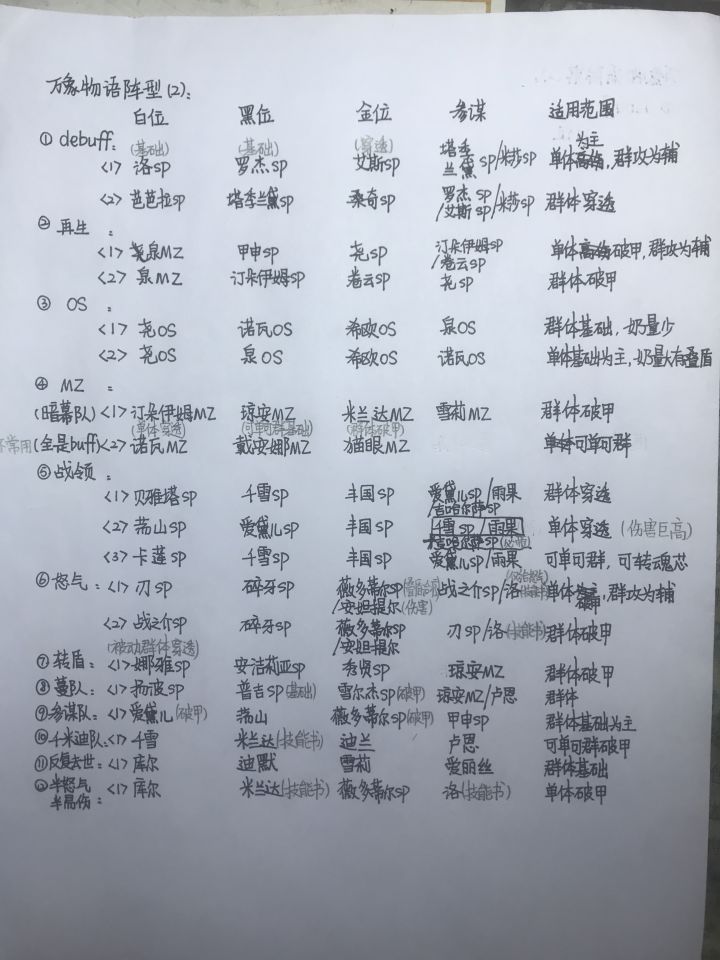 万象物语阵型(2):
白位 黑位 金位 参谋 适用范围
① debuff: (基础) (基础) (穿透)
<1> 洛SP 罗杰SP 艾斯SP 塔季兰黛SP/米莎SP 单体为主,群攻为辅
<2> 芭芭拉SP 塔季兰黛SP 桑奇SP 罗杰SP/艾斯SP/米莎SP 群体穿透
② 再生:
<1> 尧泉MZ 甲申SP 尧SP 汀朵伊姆SP/卷云SP 单体破甲,群攻为辅
<2> 泉MZ 汀朵伊姆SP 卷云SP 尧SP 群体破甲
③ OS:
<1> 尧OS 诺瓦OS 希欧OS 泉OS 群体基础,奶量少
<2> 尧OS 泉OS 希欧OS 诺瓦OS 单体基础为主,奶量大有叠盾
④ MZ:
(暗幕队) <1> 汀朵伊姆MZ 琼安MZ 米兰达MZ 雪莉MZ 群体破甲
(单体穿透) (可单可群基础) (群体破甲)
不常用(全是buff) <2> 诺瓦MZ 戴安娜MZ 猫眼MZ 可单可群
⑤ 战领:
<1> 贝雅塔SP 千雪SP 丰国SP 爱黛儿SP/雨果/吉哈尔萨SP 群体穿透
<2> 荡山SP 爱黛儿SP 丰国SP 千雪SP/雨果 单体穿透 (伤害巨高)
吉哈尔萨SP
<3> 卡莲SP 千雪SP 丰国SP 爱黛儿SP/雨果 可单可群,可转魂芯
⑥ 怒气: <1> 刃SP 碎牙SP 薇多蒂尔SP/安妲提尔(伤害) 战之介SP/洛 单体破甲,群攻为辅
<2> 战之介SP 碎牙SP 薇多蒂尔SP/安妲提尔 刃SP/洛(技能书) 群体破甲
(被动群体穿透)
⑦ 转盾: <1> 娜雅SP 安洁莉亚SP 秀贤SP 琼安MZ 群体破甲
⑧ 蔓队: <1> 扬波SP 普吉SP(基础) 雪尔杰SP(破甲) 琼安MZ/卢恩 群体
⑨ 参谋队: <1> 爱黛儿(破甲) 荡山 薇多蒂尔SP(破甲) 甲申SP 群体基础为主
⑩ 千米迪队: <1> 千雪 米兰达(技能书) 迪兰 卢恩 可单可群破甲
⑪ 反复去世: <1> 库尔 迪默 雪莉 爱丽丝 群体基础
⑫ 半怒气半易伤: <1> 库尔 米兰达(技能书) 薇多蒂尔SP 洛(技能书) 单体破甲